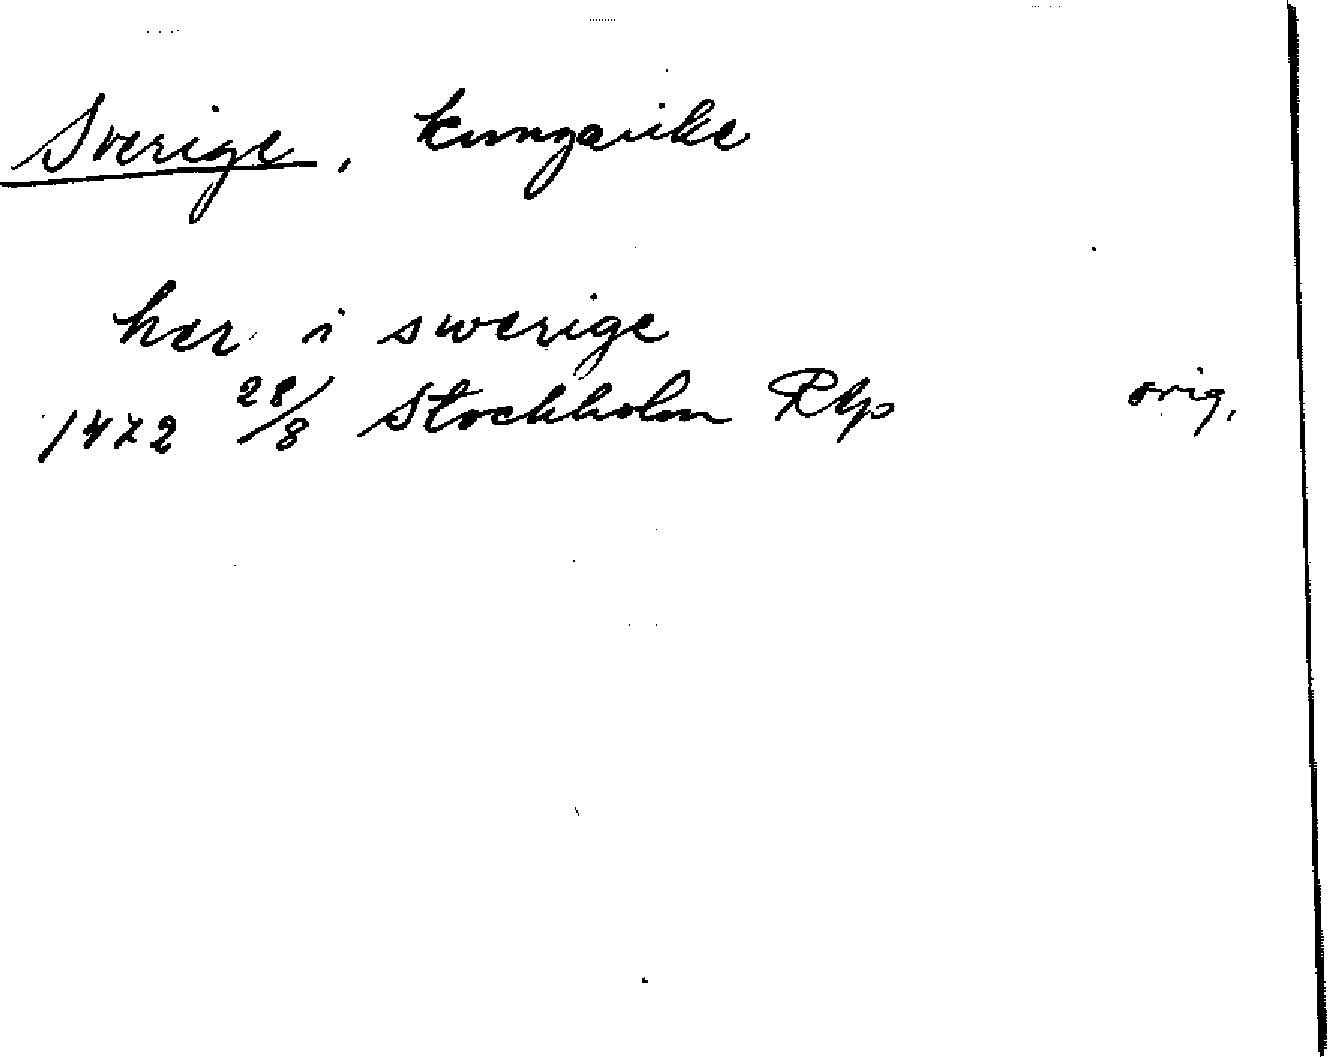 Sverige, kungarike
hær i swerige
1472 28/8 Stockholm RAp orig.